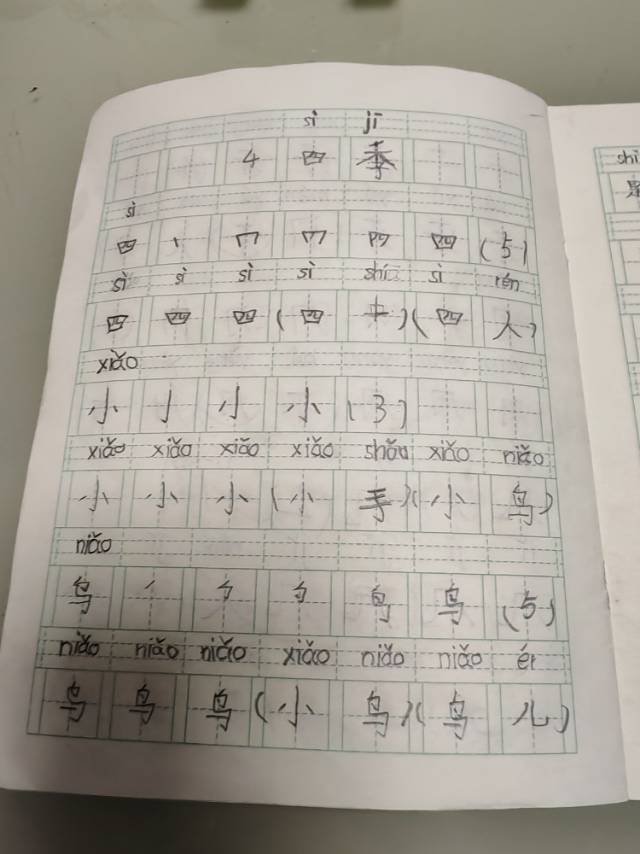 sì jī
4 四 季
sì
四 丶 冂 四 (5)
sì sì sì sì shí sì rén
四 四 四 (四 十)(四 人)
xiǎo
小 亅 小 (3)
xiǎo xiǎo xiǎo xiǎo shǒu xiǎo niǎo
小 小 小 (小 手)(小 鸟)
niǎo
鸟 丿 鸟 (5)
niǎo niǎo niǎo xiǎo niǎo niǎo ér
鸟 鸟 鸟 (小 鸟)(鸟 儿)
shi